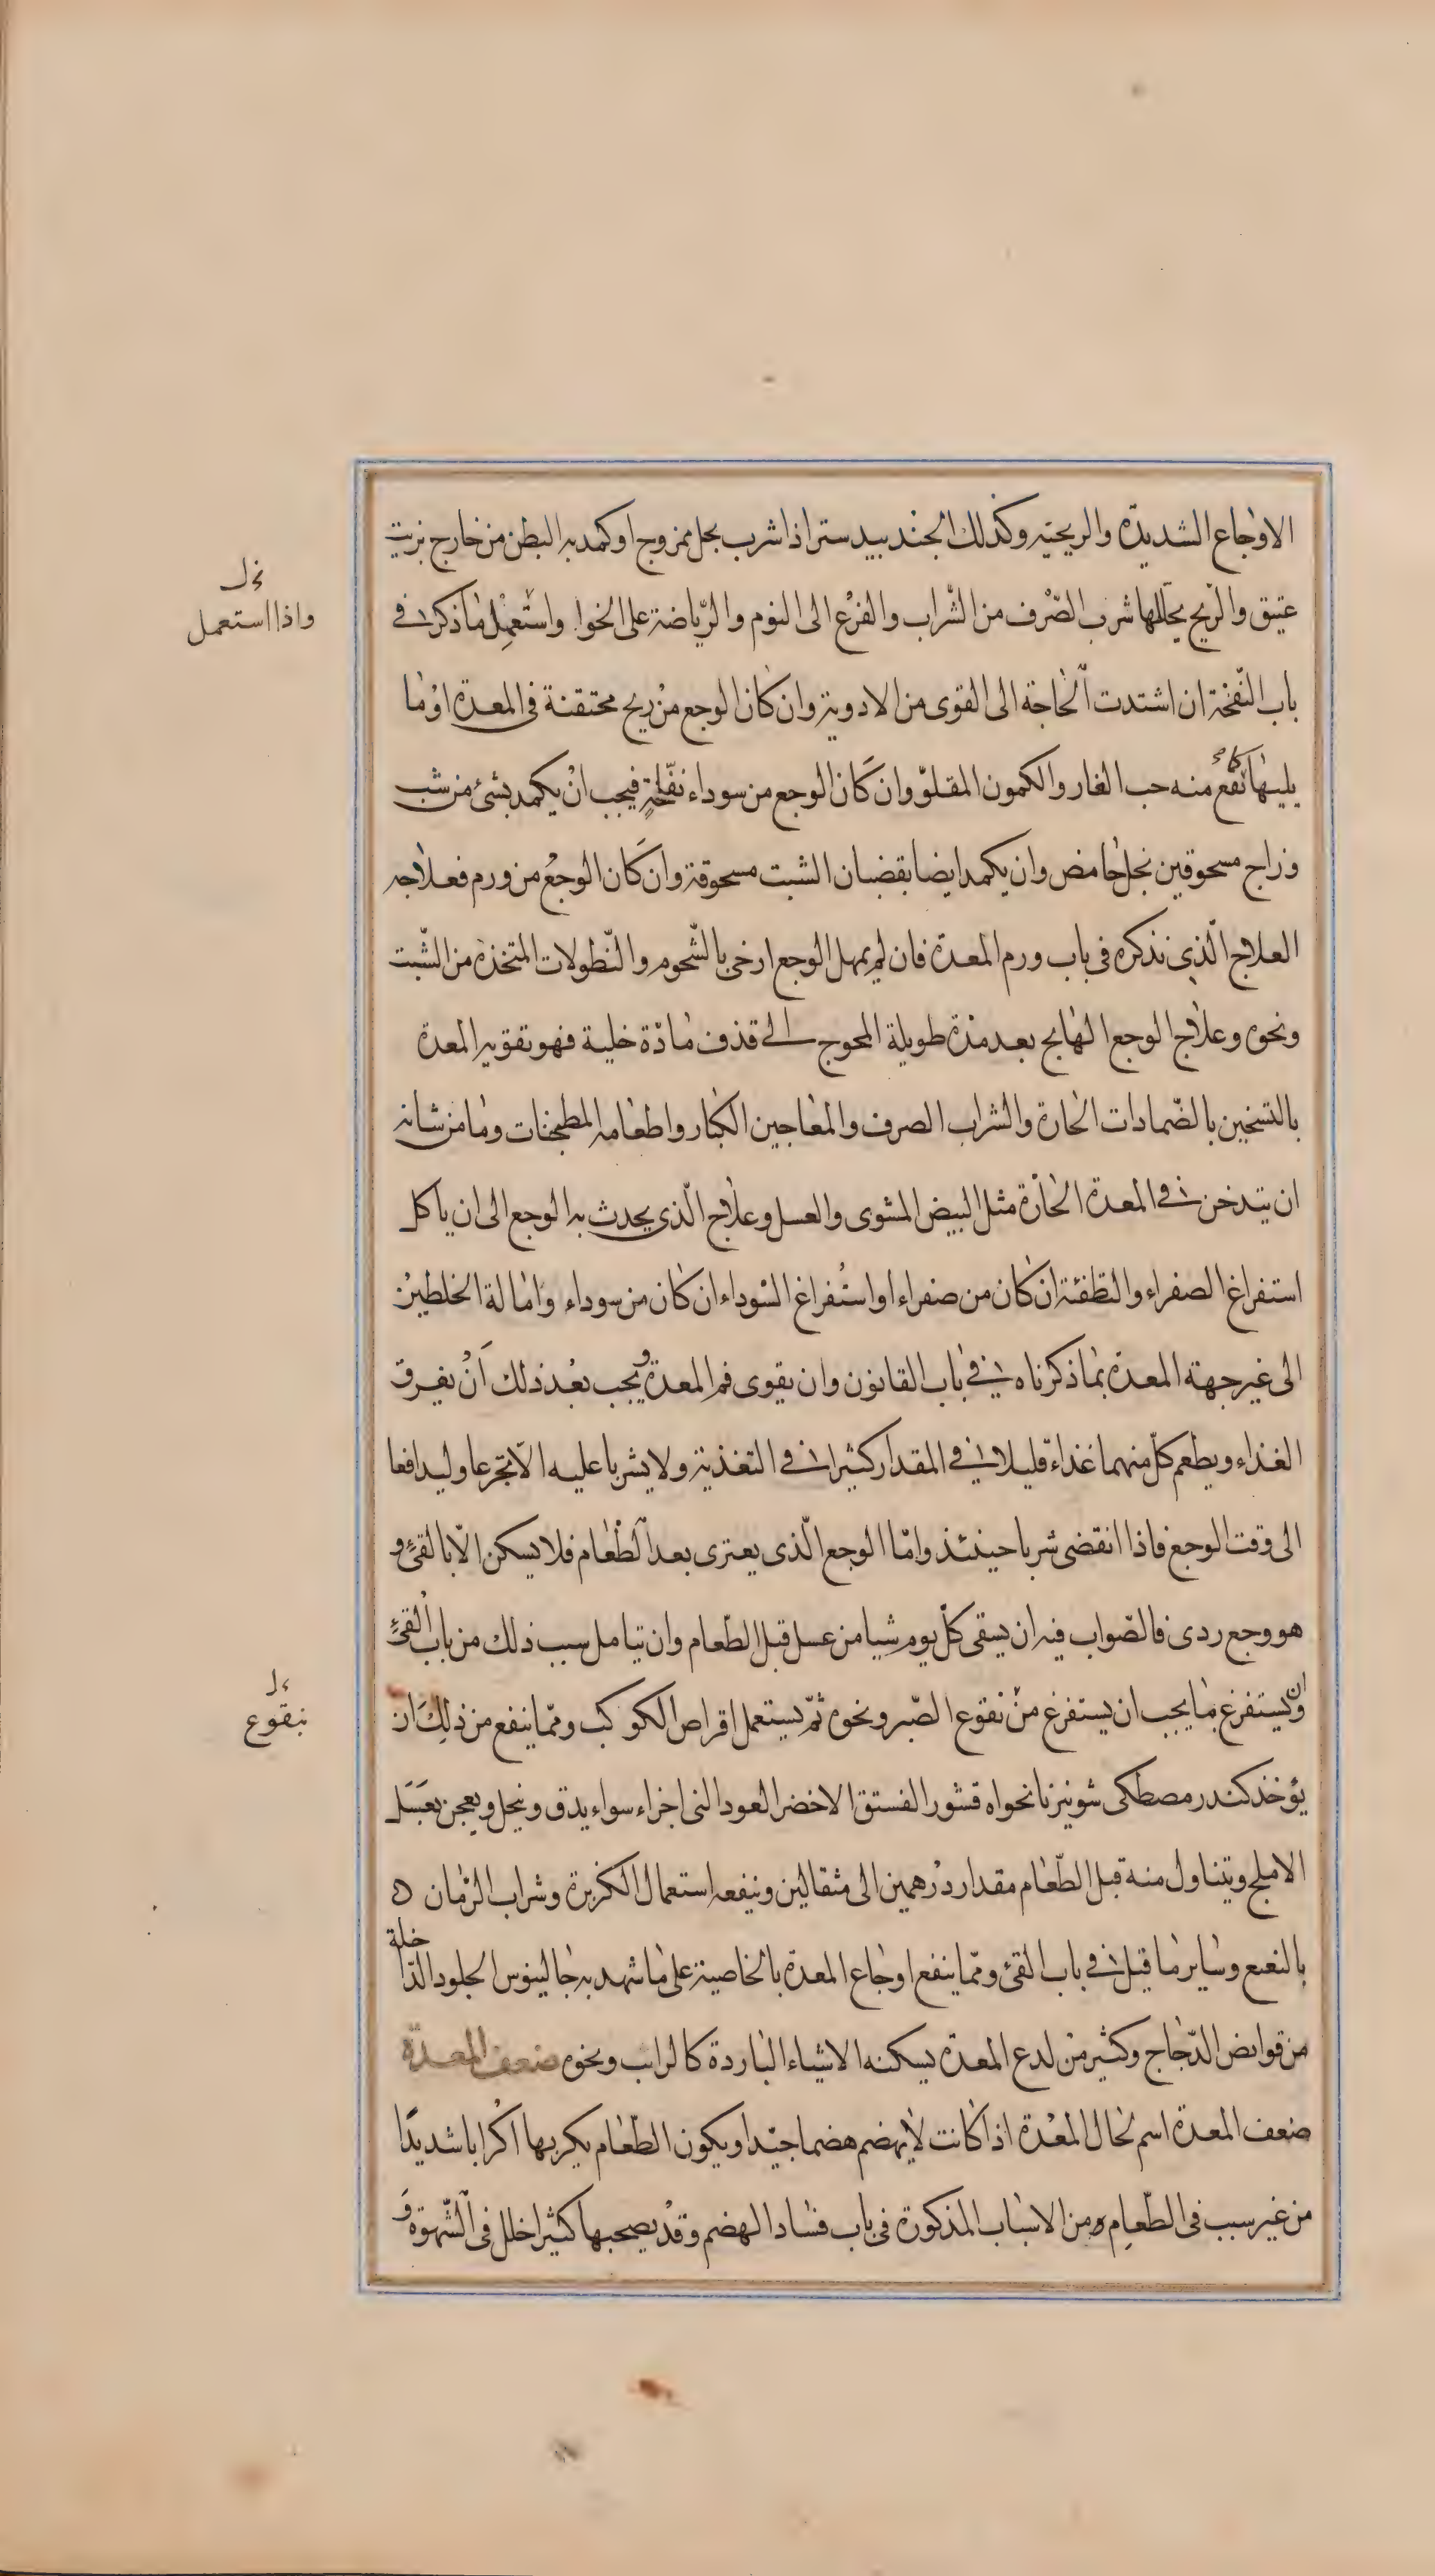 الاوجاع الشديدة والريحيّة وكذلك الجندبيدستر اذا شرب بخل ممزوج او كمد به البطن من خارج بزيت
عتيق والرّيح يحلّلها شرب الصّرف من الشّراب والفزع الى النوم والرّياضة على الخوا واستعمل ما ذكر فى
نخل
واذا استعمل
باب النّفخة ان اشتدت الحاجة الى القوى من الادوية وان كان الوجع من ريح محتقنة فى المعدة او ما
يليها نفع منه حب الغار والكمون المقلوّ وان كان الوجع من سوداء نفّاخة فيجب ان يكمد بشئ من شب
وزاج مسحوقين بخل حامض وان يكمد ايضا بقضبان الشبت مسحوقة وان كان الوجع من ورم فعلاجه
العلاج الّذى نذكره فى باب ورم المعدة فان لم يمهل الوجع ارخى بالشّحوم والنّطولات المتخذة من الشّبت
ونحوه وعلاج الوجع الهايج بعد مدة طويلة المحوج الى قذف مادّة خلية فهو تقوية المعدة
بالتسخين بالضّمادات الحارة والشراب الصرف والمعاجين الكبار واطعامه المطجنات وما من شانه
ان يتدخن فى المعدة الحارّة مثل البيض المشوى والعسل وعلاج الّذى يحدث به الوجع الى ان ياكل
استفراغ الصفراء والتطفئة ان كان من صفراء او استفراغ السّوداء ان كان من سوداء وامالة الخلطين
الى غير جهة المعدة بما ذكرناه فى باب القانون وان يقوى فم المعدة ويجب بعد ذلك ان يفرق
الغذاء ويطعم كلّ منهما غذاء قليلا فى المقدار كثيرا فى التغذية ولا يشربا عليه الّا تجرعا وليدافعا
الى وقت الوجع فاذا انقضى شربا حينئذ وامّا الوجع الّذى يعترى بعد الطّعام فلا يسكن الّا بالقئ و
هو وجع ردى فالصّواب فيه ان يسقى كلّ يوم شيا من عسل قبل الطّعام وان يتامل سبب ذلك من باب القئ
وان يستفرغ بما يجب ان يستفرغ من نقوع الصّبر ونحوه ثمّ يستعمل اقراص الكوكب وممّا ينفع من ذلك ان
بنقوع
يؤخذ كندر مصطكى شونيز نانخواه قشور الفستق الاخضر العود النى اجزاء سواء يدق وينخل ويعجن بعسل
الاملج ويتناول منه قبل الطّعام مقدار درهمين الى مثقالين وينفعه استعمال الكزبرة وشراب الرّمان
بالنعنع وساير ما قيل فى باب القئ وممّا ينفع اوجاع المعدة بالخاصية على ما شهد به جالينوس الجلود الدّاخلة
من قوانض الدّجاج وكثير من لدع المعدة يسكنه الاشياء الباردة كالرايب ونحوه ضعف المعدة
ضعف المعدة اسم لحال المعدة اذا كانت لا يهضم هضما جيّدا ويكون الطّعام يكربها اكرابا شديدًا
من غير سبب فى الطّعام ومن الاسباب المذكورة فى باب فساد الهضم وقد يصحبها كثيرا خلل فى الشّهوة و